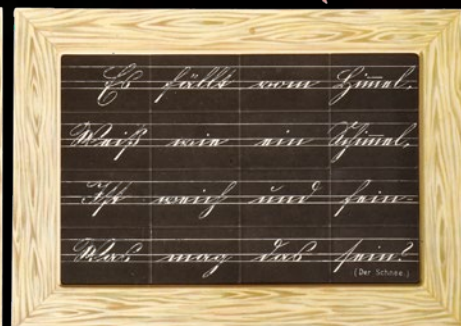 Es fällt vom Him̅el,
Weiß wie ein Schim̅el,
Ist weich und fein-
Was mag das sein?
(Der Schnee.)